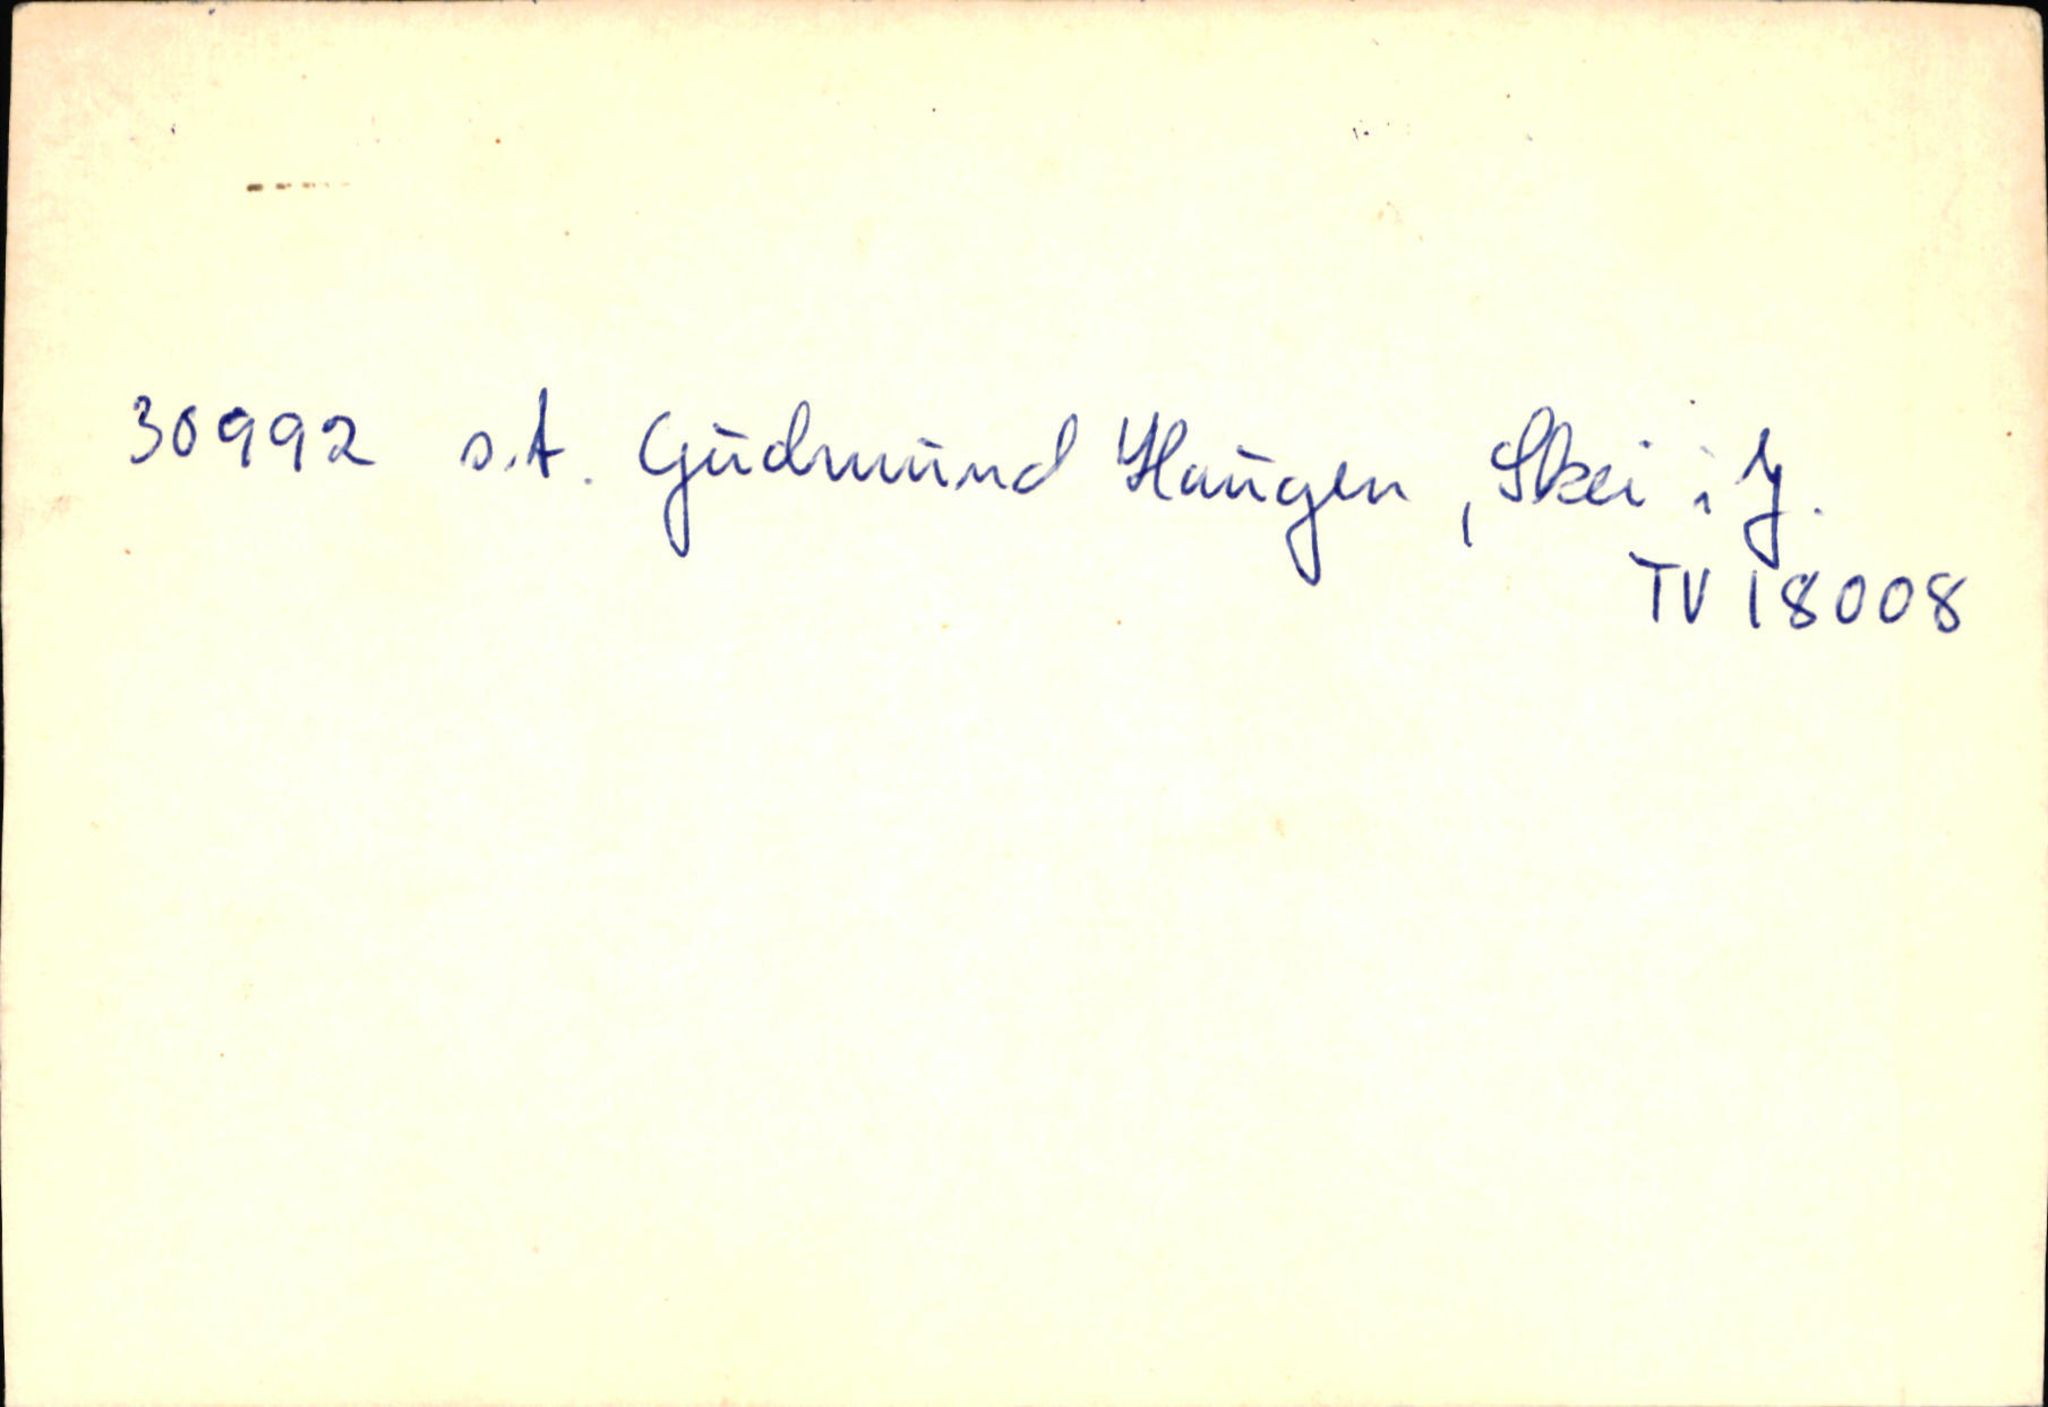 30992 s.t. Gudmund Haugen, Skei i J.
TV 18008